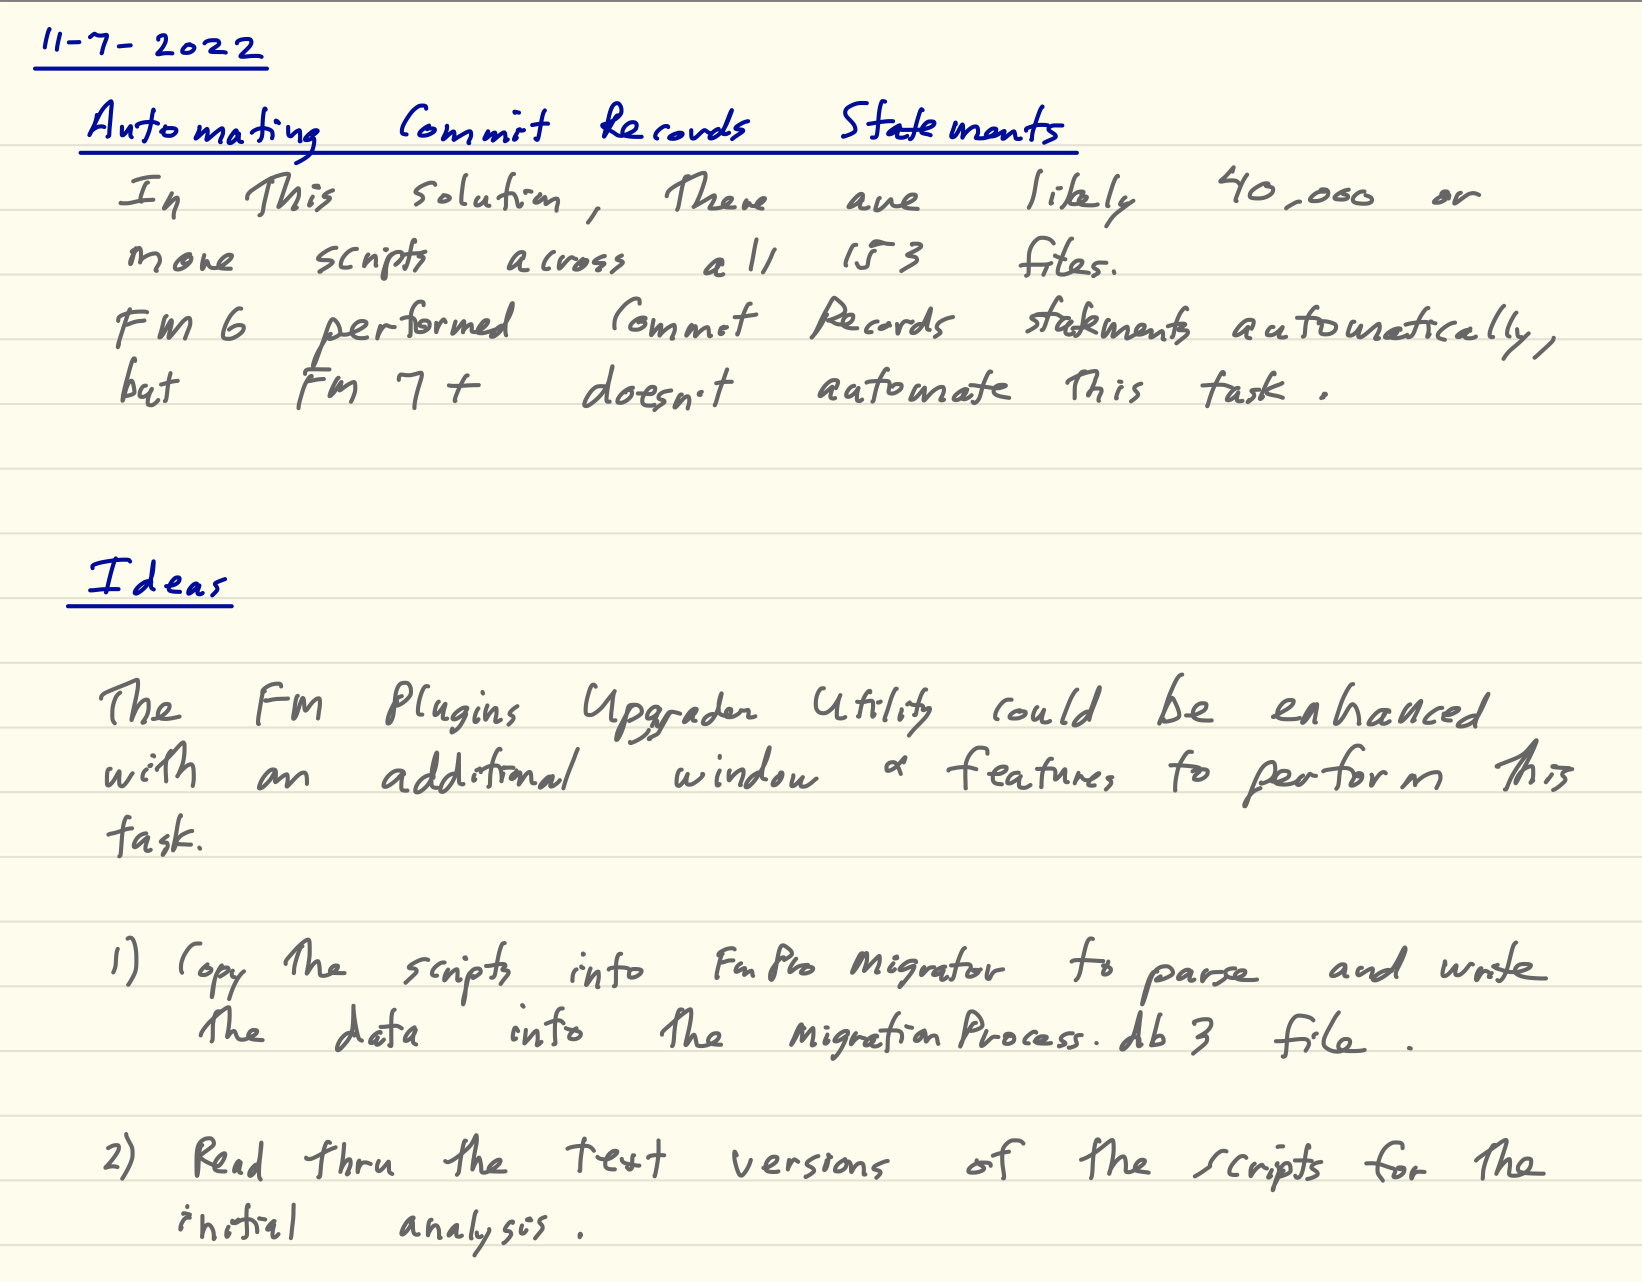 11-7-2022
Automating Commit Records Statements
In This solution, There are likely 40,000 or
more scripts across all 153 files.
FM 6 performed Commit Records statements automatically,
but FM 7+ doesn't automate This task.
Ideas
The FM Plugins Upgrader Utility could be enhanced
with an additional window & features to perform This
task.
1) Copy The scripts into FmPro Migrator to parse and write
The data into The MigrationProcess.db3 file.
2) Read thru the text versions of the scripts for The
initial analysis.